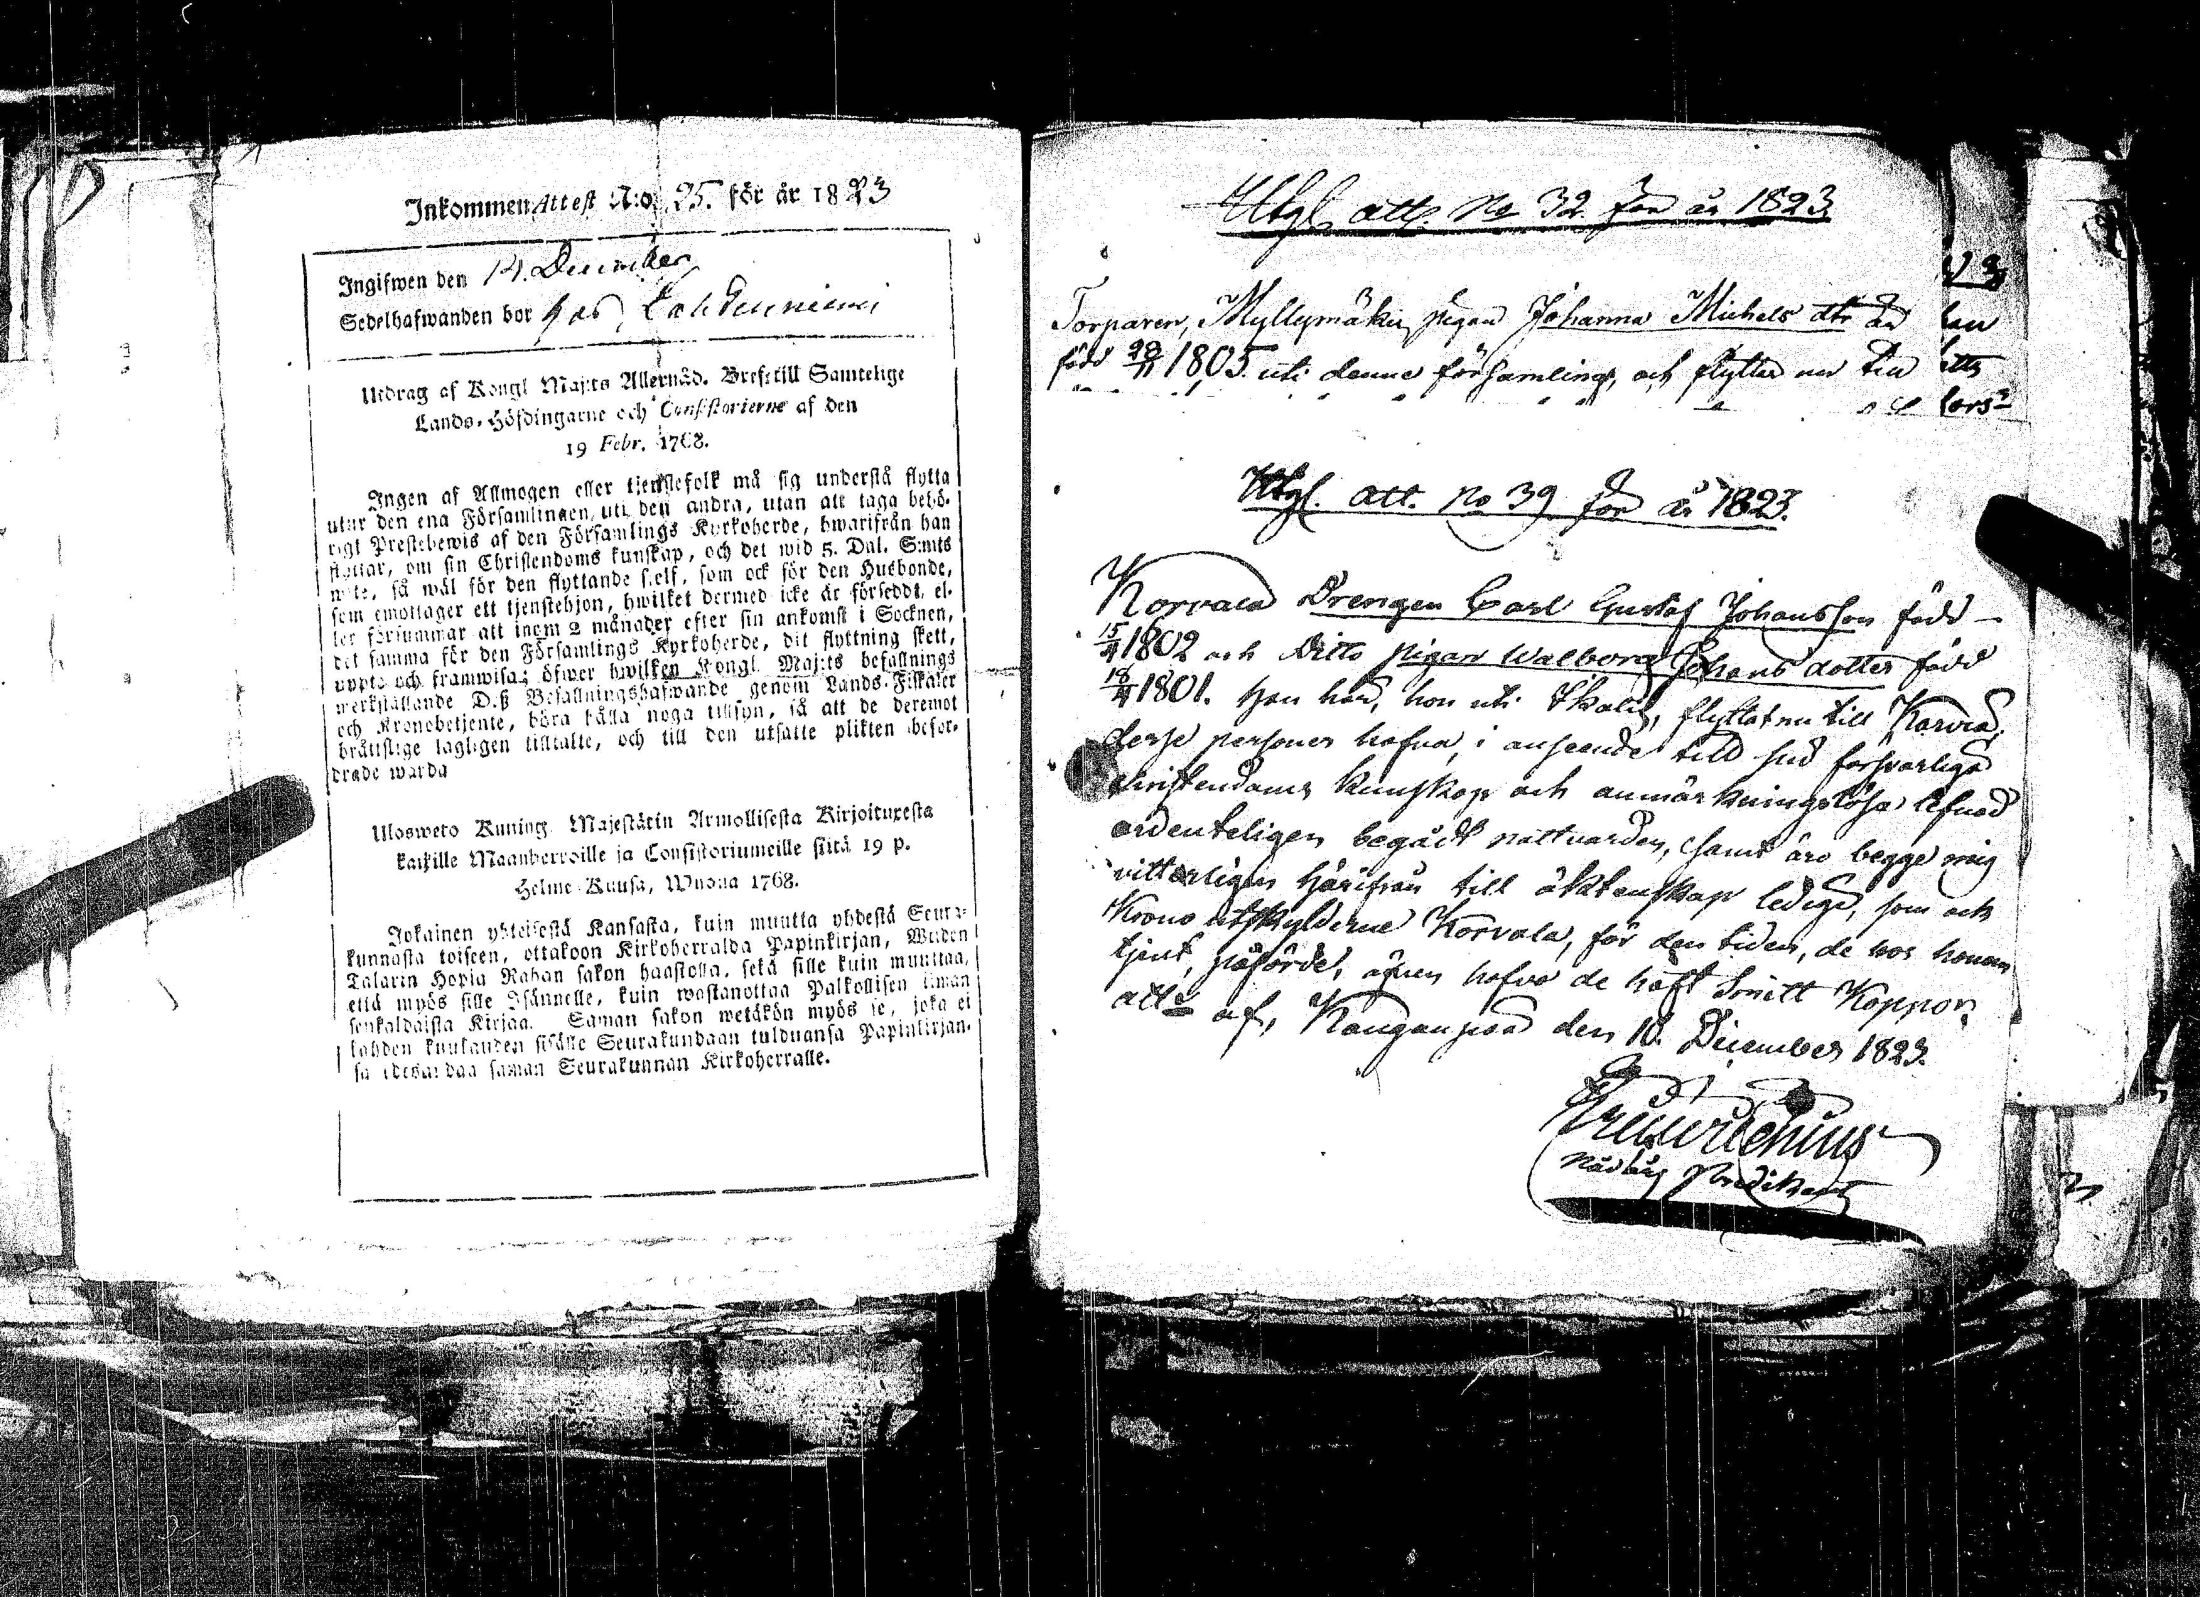 Inkommen Attest N:o 25. för år 1823
Ingifwen den 14. December
Sedelhafwanden bor hos Lahdenniemi
Utdrag af Kongl Maj:ts Allernåd. Bref till Samtelige
Lands-Höfdingarne och Consistorierne af den
19 Febr. 1768.
Ingen af Allmogen eller tjenstefolk må sig understå flytta
utur den ena Församlingen, uti den andra, utan att taga behö-
rigt Prestebewis af den Församlings Kyrkoherde, hwarifrån han
flyttar, om sin Christendoms kunskap, och det wid 5. Dal. S:mts
wite, så wäl för den flyttande sjelf, som ock för den Husbonde,
som emottager ett tjenstehjon, hwilket dermed icke är försedt, el-
ler försummar att inom 2 månader efter sin ankomst i Socknen,
det samma för den Församlings Kyrkoherde, dit flyttning skett,
uppte och framwisa; öfwer hwilken Kongl. Maj:ts befallnings
werkställande D.ß Befallningshafwande genom Lands-Fiskaler
och Kronobetjente, böra hålla noga tillsyn, så att de deremot
bråttslige lagligen tilltalte, och till den utsatte plikten befor-
drade warda
Ulosweto Kuning. Majestätin Armollisesta Kirjoituxesta
kaikille Maanherroille ja Consistoriumeille siitä 19 p.
Helme-Kuusa, Wuona 1768.
Jokainen yhteisestä Kansasta, kuin muutta yhdestä Seura-
kunnasta toiseen, ottakoon Kirkoherralda Papinkirjan, Wiiden
Talarin Hopia Rahan sakon haastolla, sekä sille kuin muuttaa,
että myös sille Isännelle, kuin wastanottaa Palkollisen ilman
senkaldaista Kirjaa. Saman sakon wetäkön myös se, joka ei
kahden kuukauden sisälle Seurakundaan tulduansa Papinkirjan-
sa edesandaa saman Seurakunnan Kirkoherralle.
Utgf. att. No 32 för år 1823
Torparen, Myllymäki, pigan Johanna Michels dtr är
född 1805 uti denne församling, och flyttar nu till
Utgf. att. No 39 för år 1823.
Korvala Drengen Carl Gustaf Johansson född
1802 och Ditto pigan Walborg Johans dotter född
1801. Han här, hon uti flyttat nu till
desse personer hafva, i anseende till sin försvarliga
christendoms kunskap och anmärkningslösa lefnad
ordenteligen begådt nattvarden, samt äro begge mig
vitterligen härifrån till äktenskap ledige, som och
Krono utskylderne Korvala, för den tiden, de hos honom
tjent, påförde, äfven hafva de haft Smitt Koppor,
att:s af, Kanganpää den 10. December 1823.